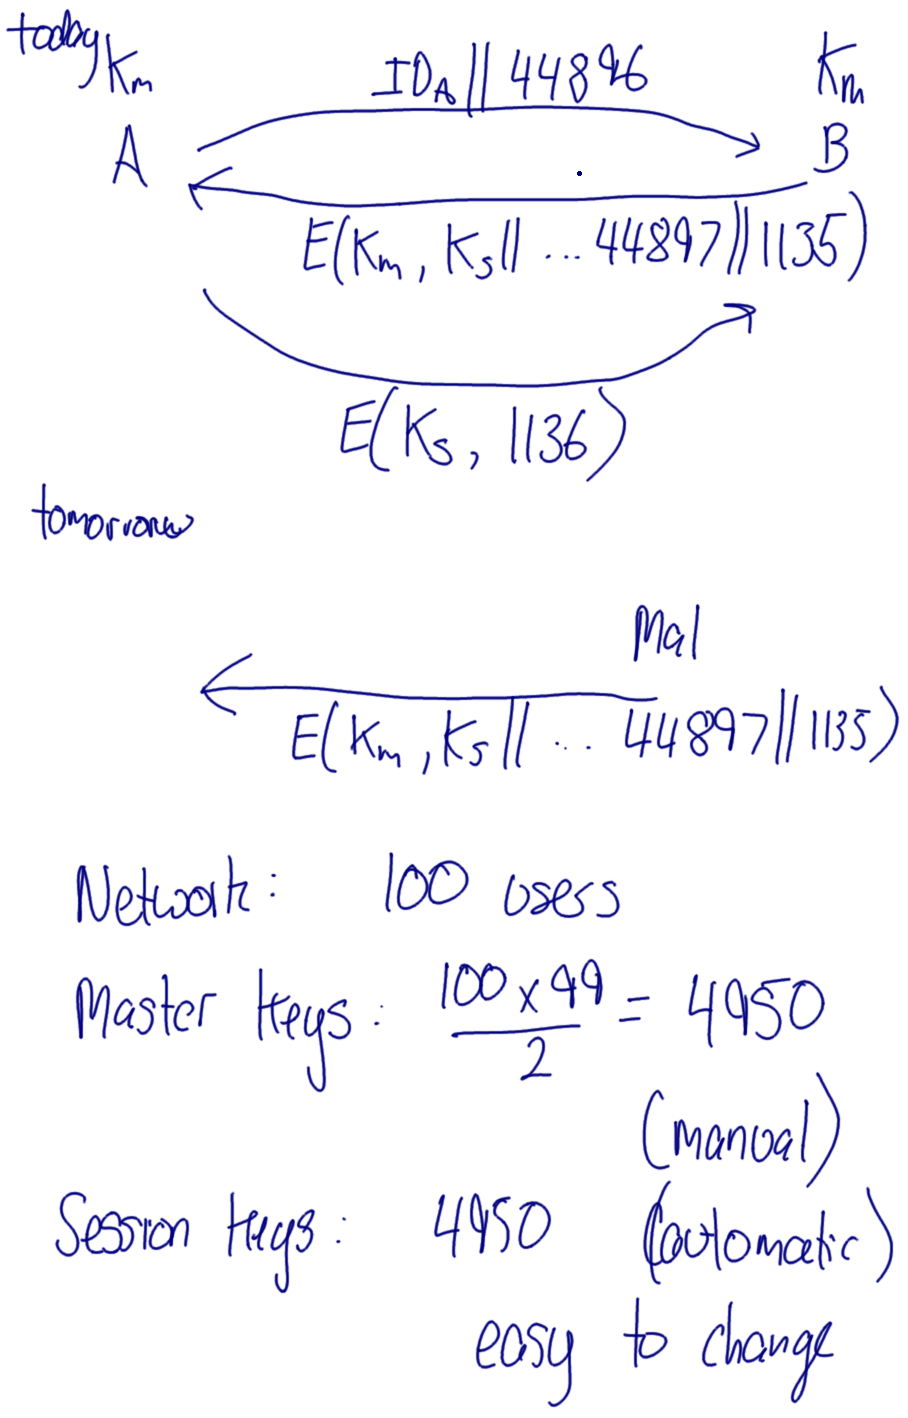 today
Km IDA || 44896 Km
A B
E(Km, Ks|| ... 44897||1135)
E(Ks, 1136)
tomorrow
Mal
E(Km, Ks|| ... 44897||1135)
Network: 100 users
Master Keys: 100 x 99 / 2 = 4950
(manual)
Session Keys: 4950 (automatic)
easy to change